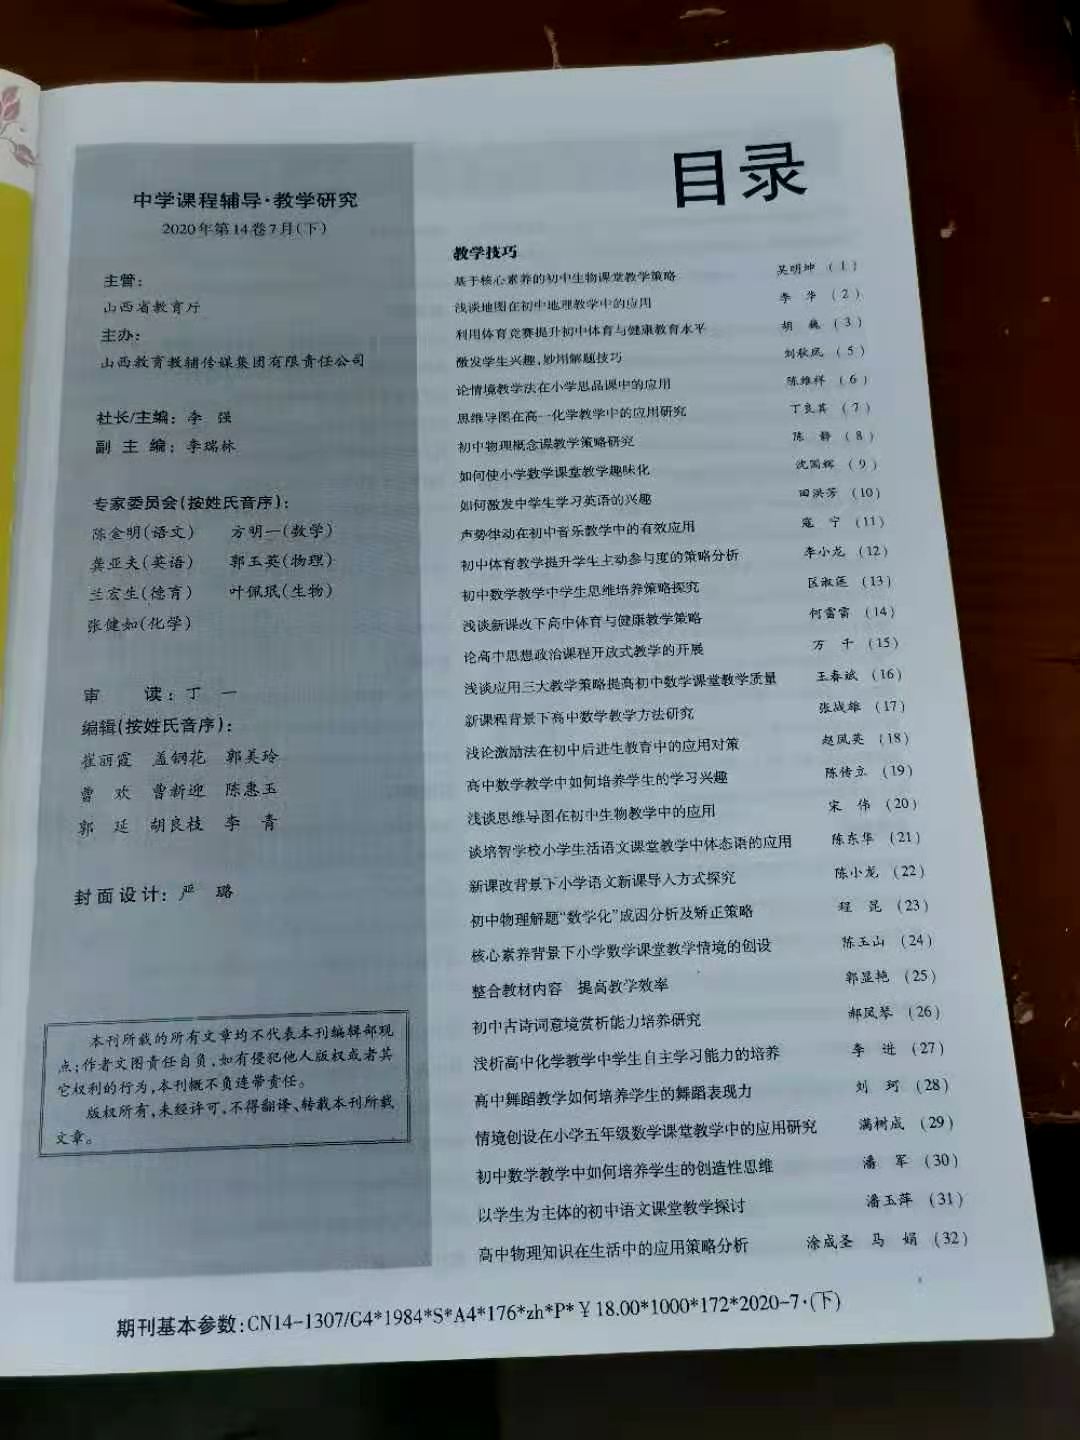 中学课程辅导·教学研究
2020年第14卷7月(下)
主管：
山西省教育厅
主办：
山西教育教辅传媒集团有限责任公司
社长/主编：李 强
副 主 编：李瑞林
专家委员会(按姓氏音序)：
陈金明(语文) 方明一(数学)
龚亚夫(英语) 郭玉英(物理)
兰宏生(德育) 叶佩珉(生物)
张健如(化学)
审 读：丁 一
编辑(按姓氏音序)：
崔丽霞 盖钢花 郭美玲
曹 欢 曹新迎 陈惠玉
郭 延 胡良枝 李 青
封面设计：严 璐
本刊所载的所有文章均不代表本刊编辑部观
点；作者文图责任自负，如有侵犯他人版权或者其
它权利的行为，本刊概不负连带责任。
版权所有，未经许可，不得翻译、转载本刊所载
文章。
目录
教学技巧
基于核心素养的初中生物课堂教学策略 吴明坤 (1)
浅谈地图在初中地理教学中的应用 李 华 (2)
利用体育竞赛提升初中体育与健康教育水平 胡 巍 (3)
激发学生兴趣，妙用解题技巧 刘秋凤 (5)
论情境教学法在小学思品课中的应用 陈维祥 (6)
思维导图在高一化学教学中的应用研究 丁良其 (7)
初中物理概念课教学策略研究 陈 静 (8)
如何使小学数学课堂教学趣味化 沈国辉 (9)
如何激发中学生学习英语的兴趣 田洪芳 (10)
声势律动在初中音乐教学中的有效应用 寇 宁 (11)
初中体育教学提升学生主动参与度的策略分析 李小龙 (12)
初中数学教学中学生思维培养策略探究 区淑莲 (13)
浅谈新课改下高中体育与健康教学策略 何雷雷 (14)
论高中思想政治课程开放式教学的开展 万 千 (15)
浅谈应用三大教学策略提高初中数学课堂教学质量 王春斌 (16)
新课程背景下高中数学教学方法研究 张战雄 (17)
浅论激励法在初中后进生教育中的应用对策 赵凤英 (18)
高中数学教学中如何培养学生的学习兴趣 陈传立 (19)
浅谈思维导图在初中生物教学中的应用 宋 伟 (20)
谈培智学校小学生活语文课堂教学中体态语的应用 陈东华 (21)
新课改背景下小学语文新课导入方式探究 陈小龙 (22)
初中物理解题“数学化”成因分析及矫正策略 程 昆 (23)
核心素养背景下小学数学课堂教学情境的创设 陈玉山 (24)
整合教材内容 提高教学效率 郭显艳 (25)
初中古诗词意境赏析能力培养研究 郝凤琴 (26)
浅析高中化学教学中学生自主学习能力的培养 李 进 (27)
高中舞蹈教学如何培养学生的舞蹈表现力 刘 珂 (28)
情境创设在小学五年级数学课堂教学中的应用研究 满树成 (29)
初中数学教学中如何培养学生的创造性思维 潘 军 (30)
以学生为主体的初中语文课堂教学探讨 潘玉萍 (31)
高中物理知识在生活中的应用策略分析 涂成圣 马 娟 (32)
期刊基本参数：CN14-1307/G4*1984*S*A4*176*zh*P*￥18.00*1000*172*2020-7·(下)